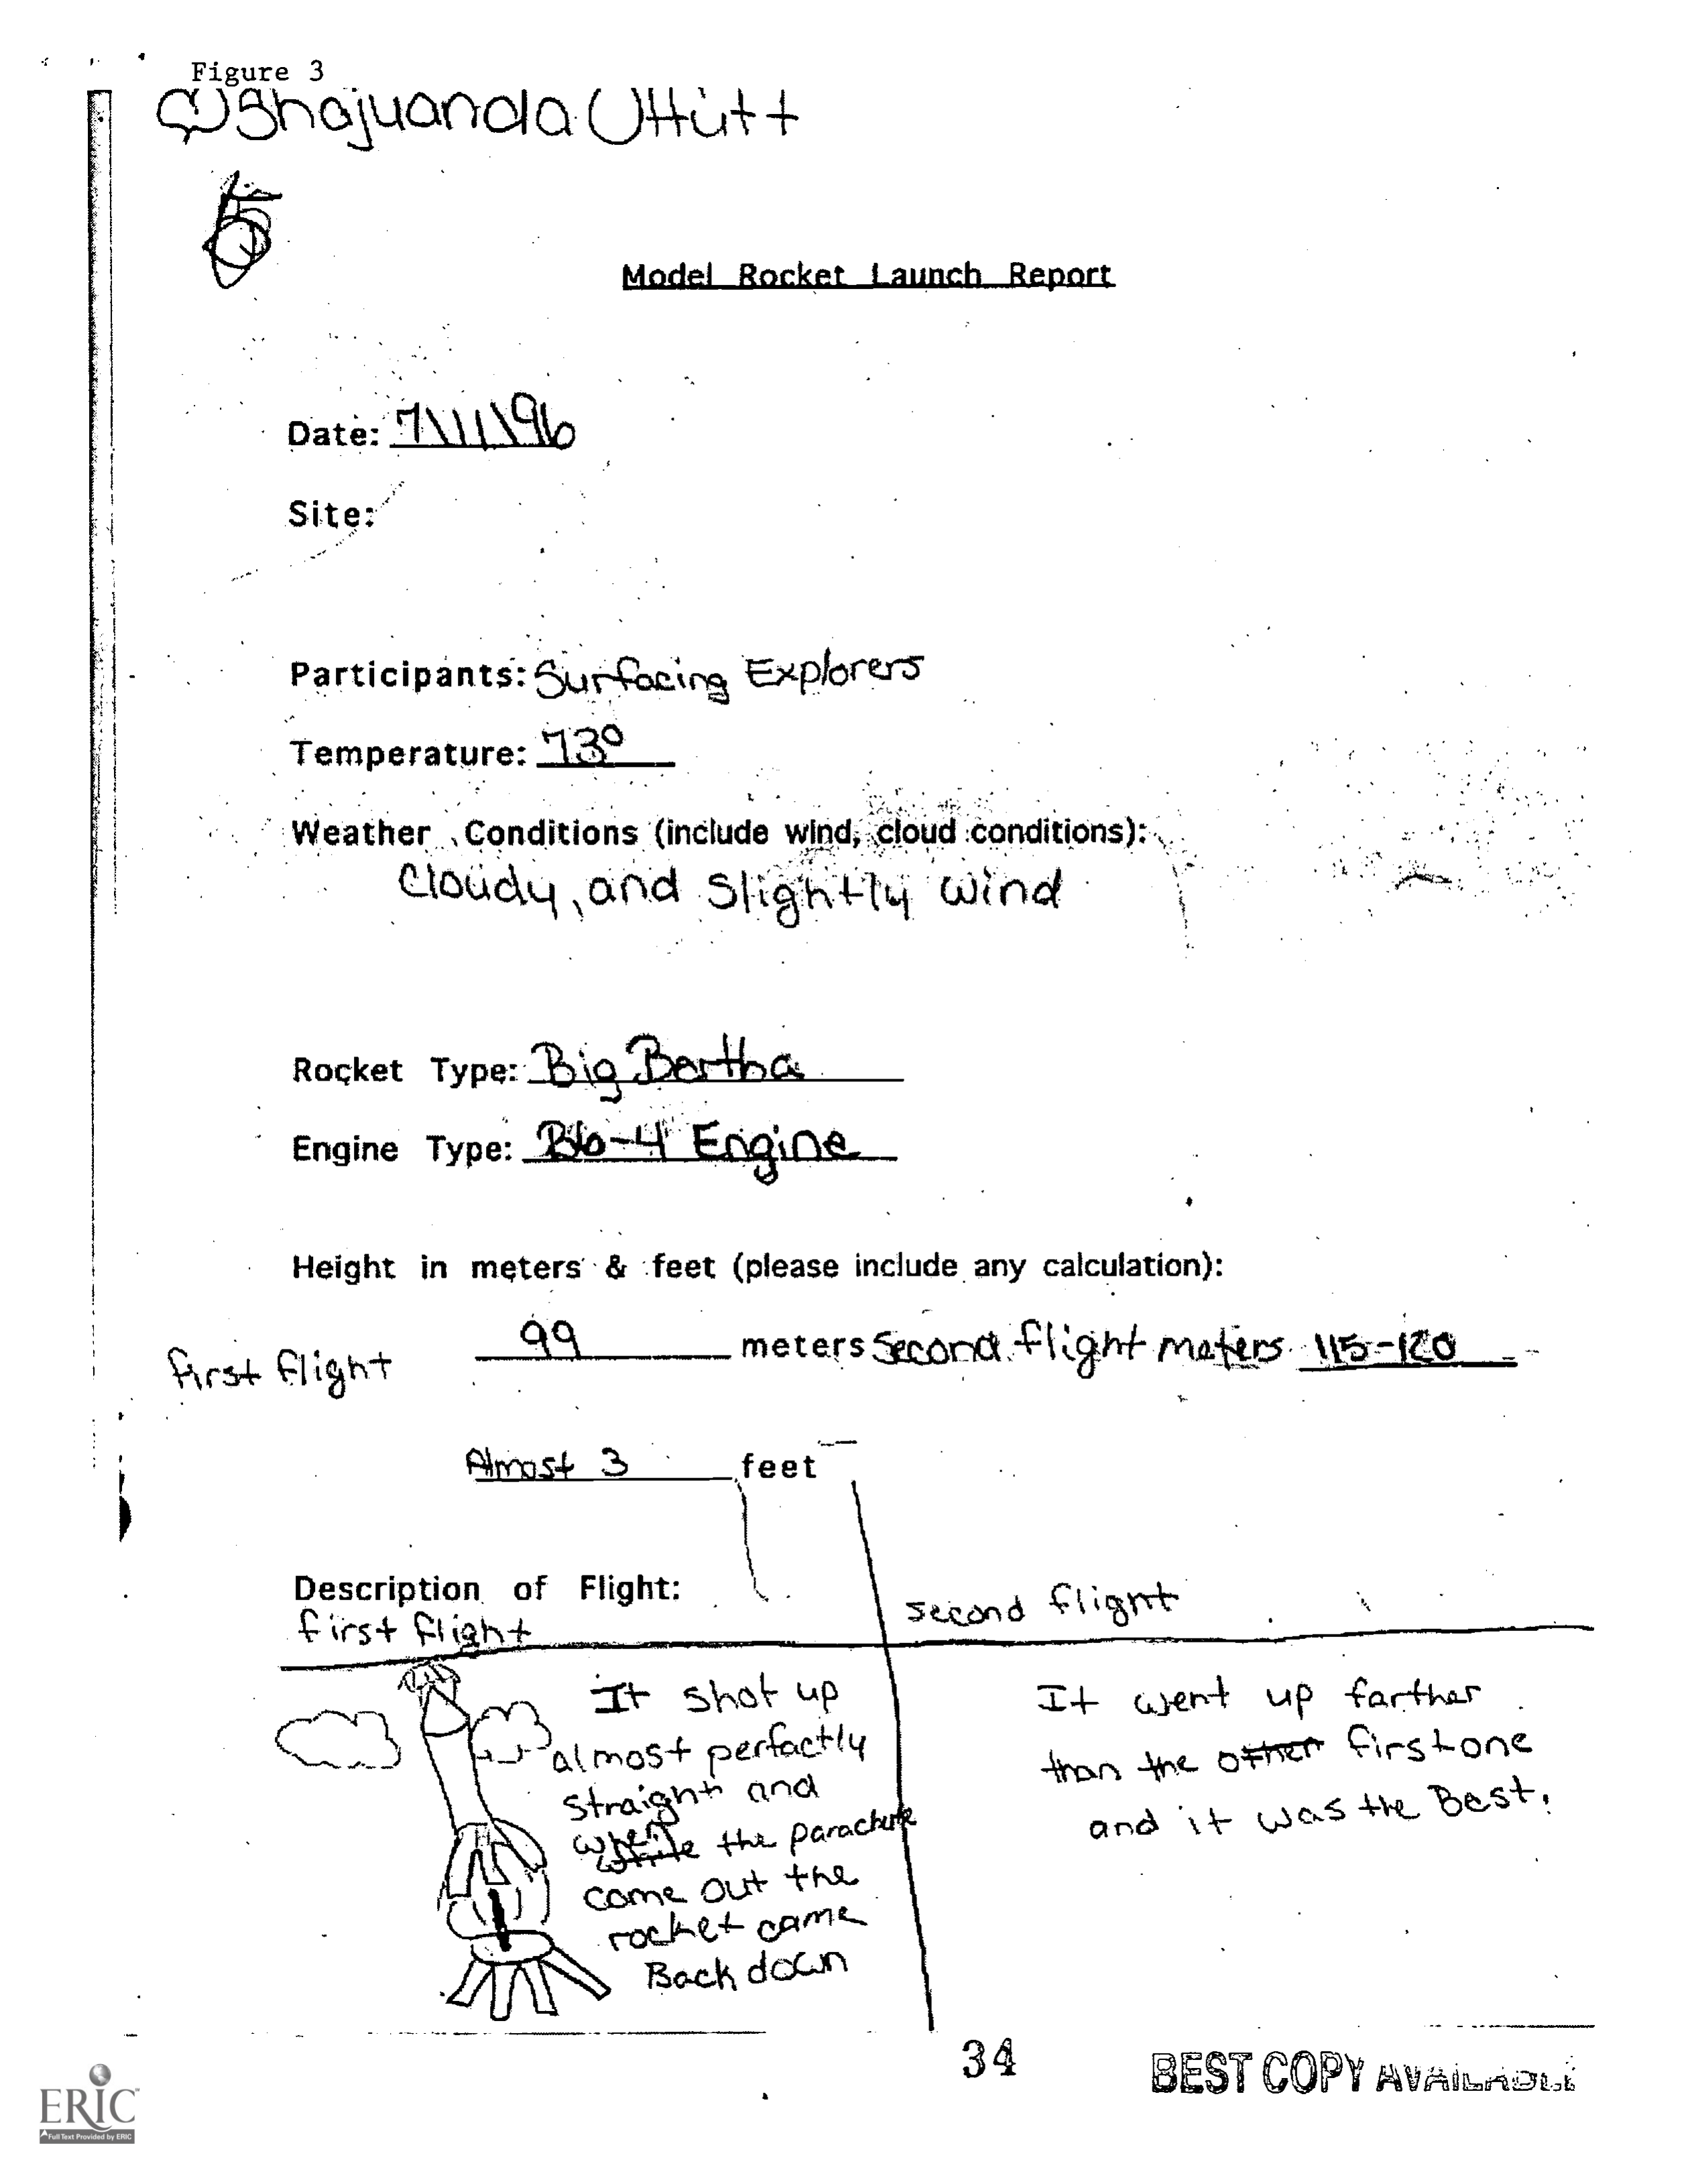 Figure 3
Shajuanda
Model Rocket Launch Report
Date: 7\11\96
Site:
Participants: Surfacing Explorers
Temperature: 73°
Weather Conditions (include wind, cloud conditions):
Cloudy, and Slightly wind
Rocket Type: Big Bertha
Engine Type: B6-4 Engine
Height in meters & feet (please include any calculation):
first flight 99 meters Second flight meters 115-120
Almost 3 feet
Description of Flight:
first flight
second flight
It shot up
almost perfactly
straight and
when the parachute
come out the
rocket came
Back down
It went up farther
than the other first one
and it was the Best.
34
BEST COPY AVAILABLE
ERIC
Full Text Provided by ERIC